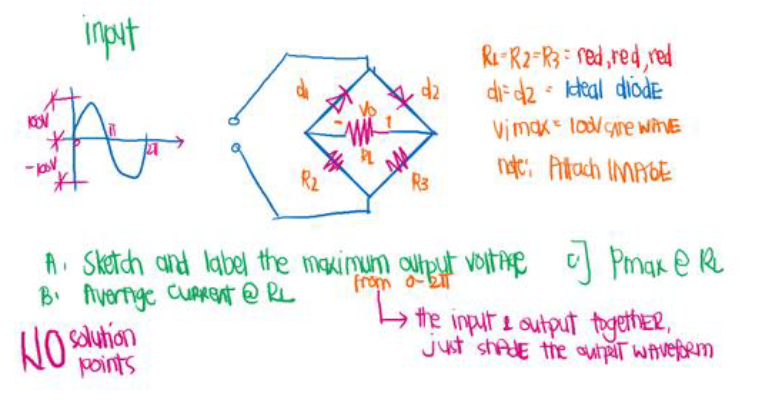 input
100V
-100V
0
π
2π
d1
d2
Vo
- +
RL
R2
R3
RL=R2=R3= red,red,red
d1=d2= Ideal diode
Vimax= 100V sine WAVE
note: Attach IMAGE
A. Sketch and label the maximum output voltage
B. Average current @ RL
from 0-2π
c] Pmax @ RL
the input & output together,
just shade the output waveform
NO solution
points